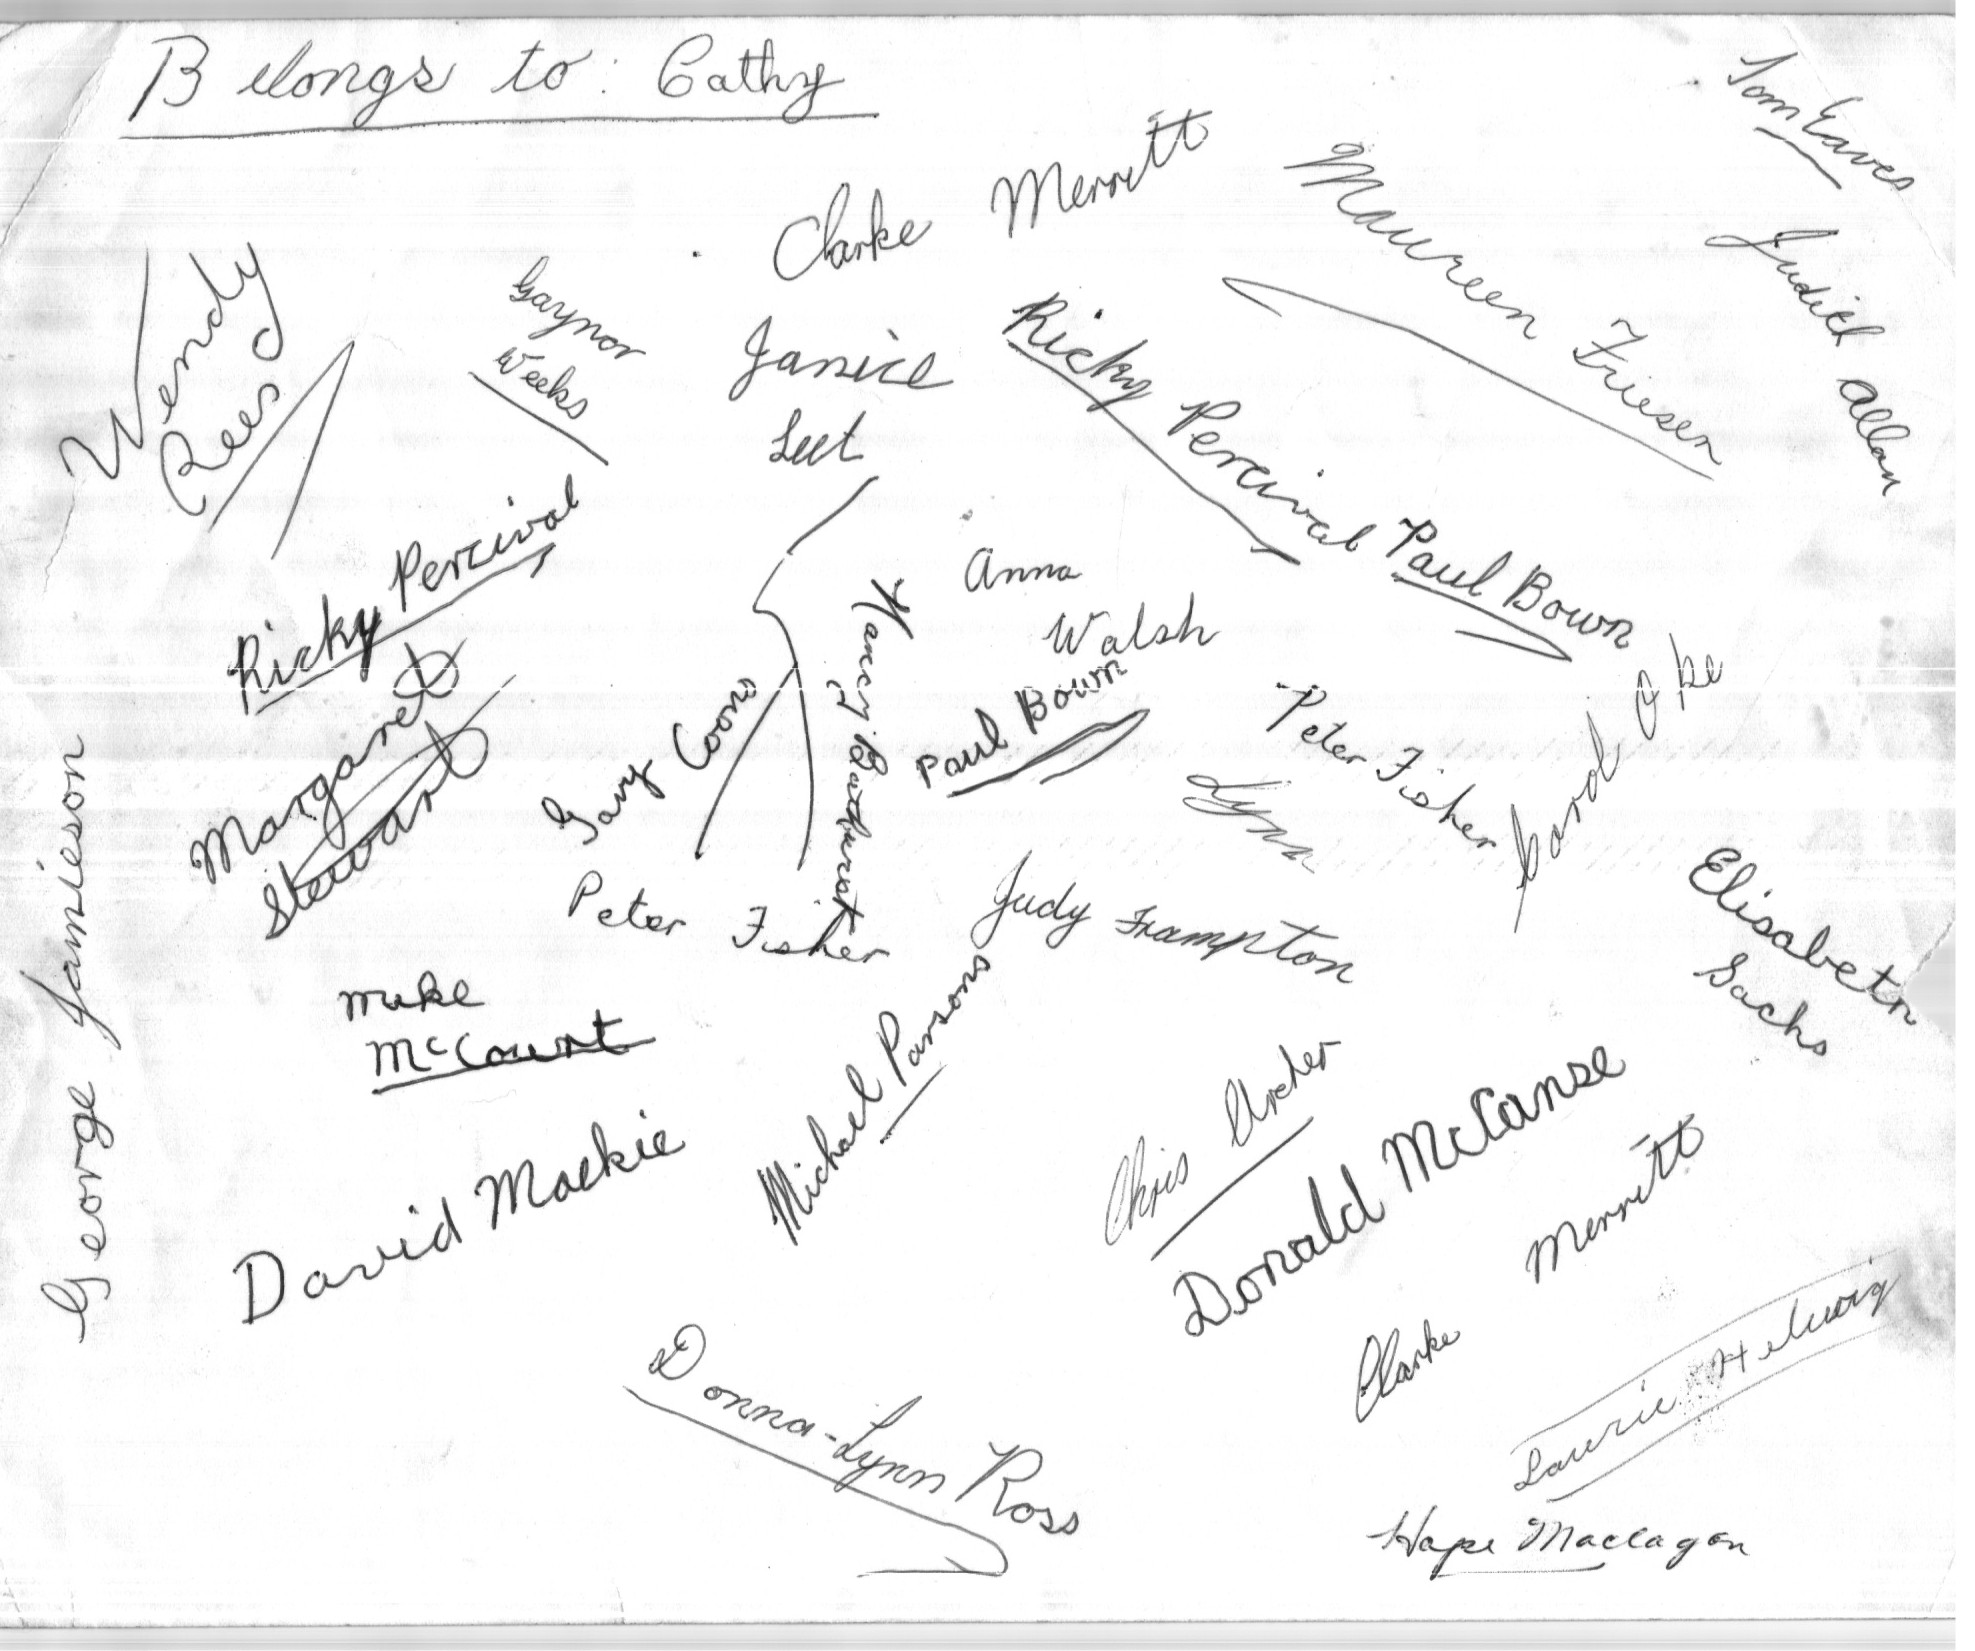 Belongs to: Cathy
Tom Eaves
Clarke Merritt
Maureen Friesen
Judith Allan
Wendy
Rees
Gaynor
Weeks
Janice
Leet
Ricky Percival
Ricky Percival
Paul Bown
Anna
Walsh
Paul Bown
Nancy Bathurst
Margaret
Stewart
Gary Coons
Peter Fisher
Lynn
Carol Oke
Peter Fisher
Judy Frampton
Elisabeth
Sachs
George Jamieson
Mike
McCourt
Michael Parsons
Chris Archer
Donald McCanse
David Mackie
Clarke Merritt
Laurie Helwig
Donna-Lynn Ross
Hope Maclagan